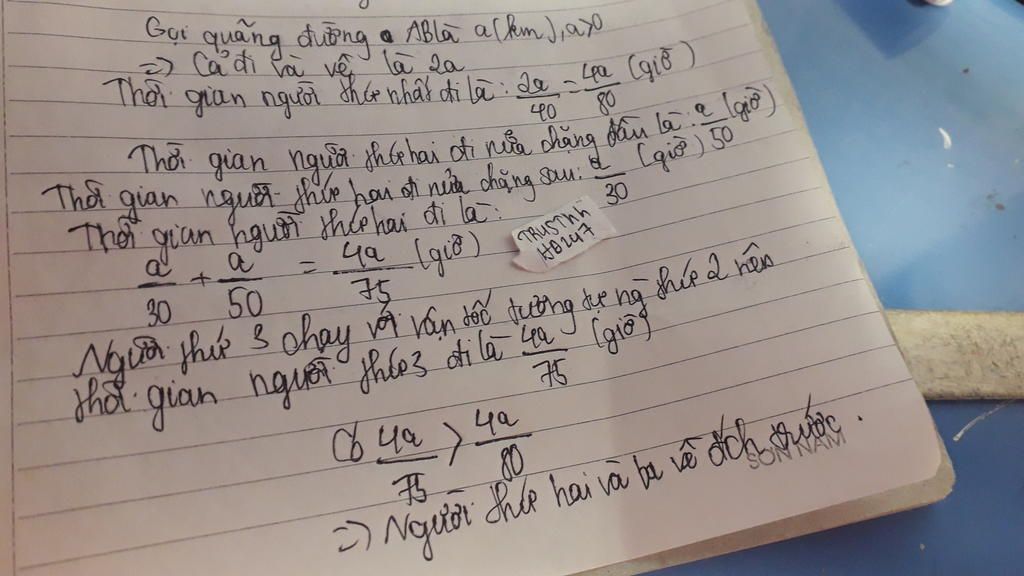 Gọi quãng đường AB là a (km), a>0
=> Cả đi và về là 2a
Thời gian người thứ nhất đi là: 2a/40 = 4a/80 (giờ)
Thời gian người thứ hai đi nửa chặng đầu là: a/50 (giờ)
Thời gian người thứ hai đi nửa chặng sau: a/30 (giờ)
Thời gian người thứ hai đi là:
a/30 + a/50 = 4a/75 (giờ)
TRUSTHH
HD247
Người thứ 3 chạy với vận tốc tương tự ng thứ 2 nên
thời gian người thứ 3 đi là 4a/75 (giờ)
Có 4a/75 > 4a/80
=> Người thứ hai và ba về đích trước.
SON NAM